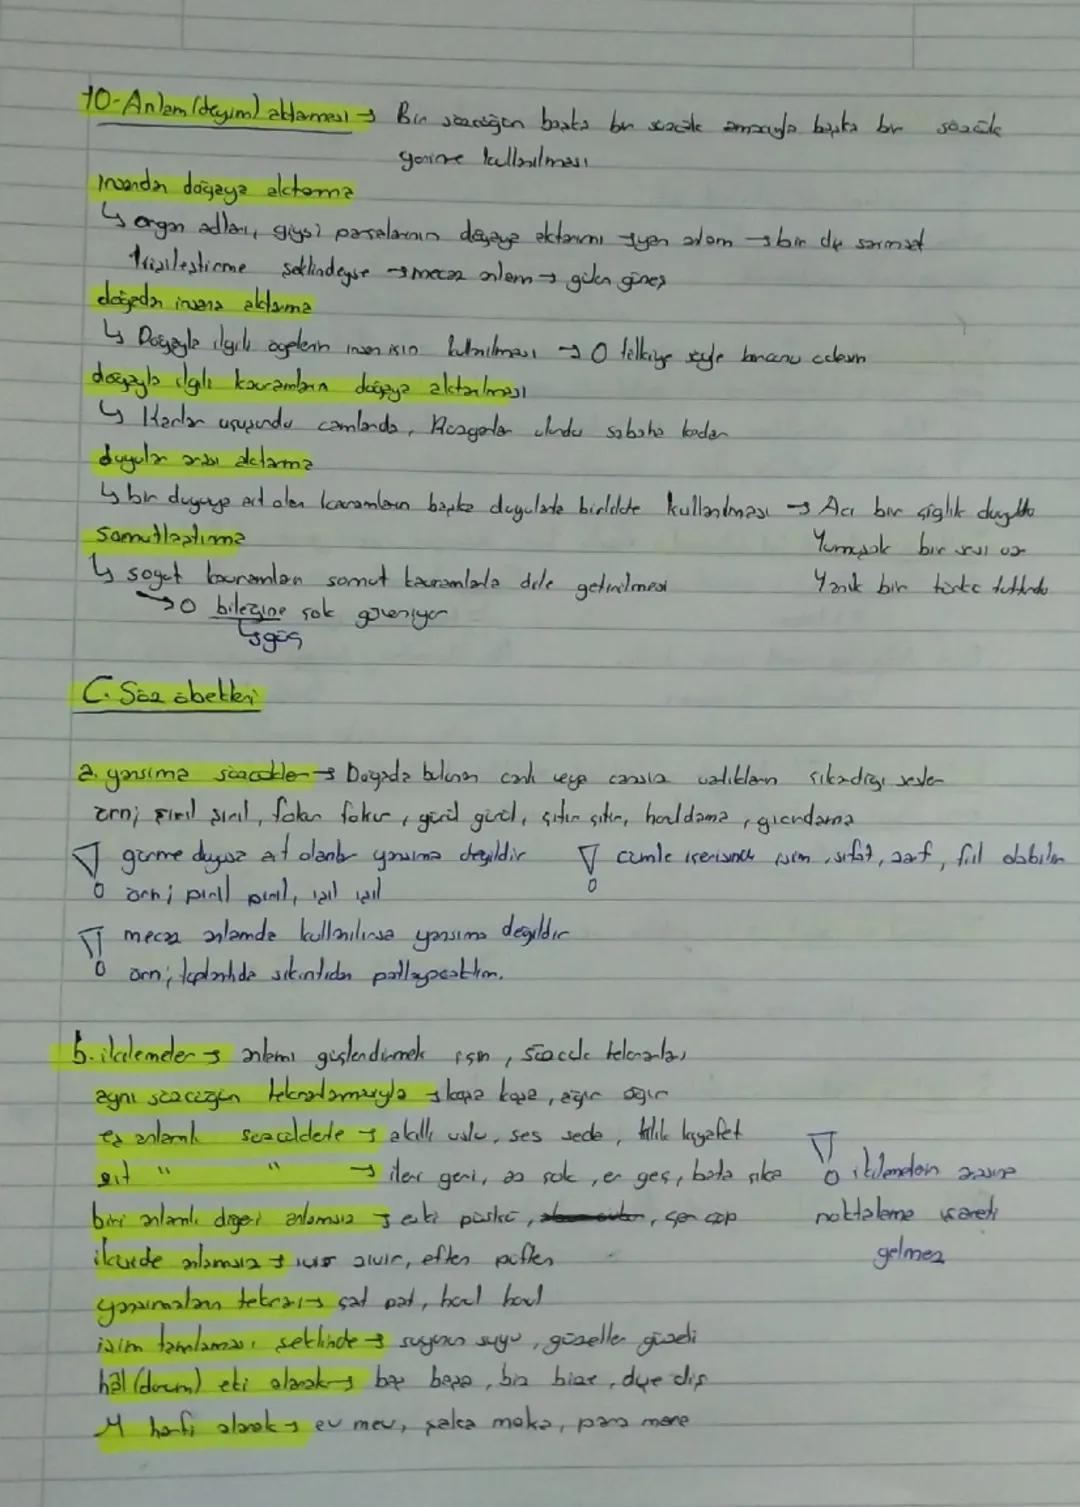 10-Anlam (deyim) aktarması → Bir sözcüğün başka bir sözcük amacıyla başka bir sözcük
yerine kullanılması
insandan doğaya aktarma
↳ organ adları, giysi parçalarının doğaya aktarımı → bir diş sarımsak
kişileştirme şeklindeyse → mecaz anlam → gülen güneş
doğadan insana aktarma
↳ Doğayla ilgili ögelerin insan için kullanılması → O tilkiye söyle
doğayla ilgili kavramların doğaya aktarılması
↳ Karlar uçuşurdu camlarda, Rüzgarlar uludu sabaha kadar
duyular arası aktarma
↳ bir duyuya ait olan kavramların başka duyularla birlikte kullanılması → Acı bir çığlık duyuldu
Somutlaştırma Yumuşak bir sesi var
↳ soyut kavramları somut kavramlarla dile getirilmesi Yanık bir türkü tutturdu
→ O bileğine çok güveniyor
↳ güç
C. Söz öbekleri
a. yansıma sözcükler → Doğada bulunan canlı veya cansız varlıkların çıkardığı sesler
örn; şırıl şırıl, fokur fokur, gürül gürül, çıtır çıtır, horldama, gıcırdama
! görme duyusu ait olanlar yansıma değildir ! cümle içerisinde isim, sıfat, zarf, fiil olabilir
örn; pırıl pırıl, ışıl ışıl
! mecaz anlamda kullanılırsa yansıma değildir
örn; toplantıda sıkıntıdan patlayacaktım.
b. ikilemeler → anlamı güçlendirmek için, sözcük tekrarları
aynı sözcüğün tekrarlamasıyla → koşa koşa, ağır ağır
eş anlamlı sözcüklerle → akıllı uslu, ses seda, kılık kıyafet
zıt " " → ileri geri, az çok, er geç, bata çıka ! ikilemelerin arasına
biri anlamlı diğeri anlamsız → eski püskü, çer çöp noktalama işareti
ikiside anlamsız → ıvır zıvır, eften püften gelmez
yansımaların tekrarı → çat pat, horul horul
isim tamlaması şeklinde → suyunun suyu, güzeller güzeli
hâl (durum) eki alarak → baş başa, biz bize, dişe diş
M harfi alarak → ev mev, şaka maka, para mara